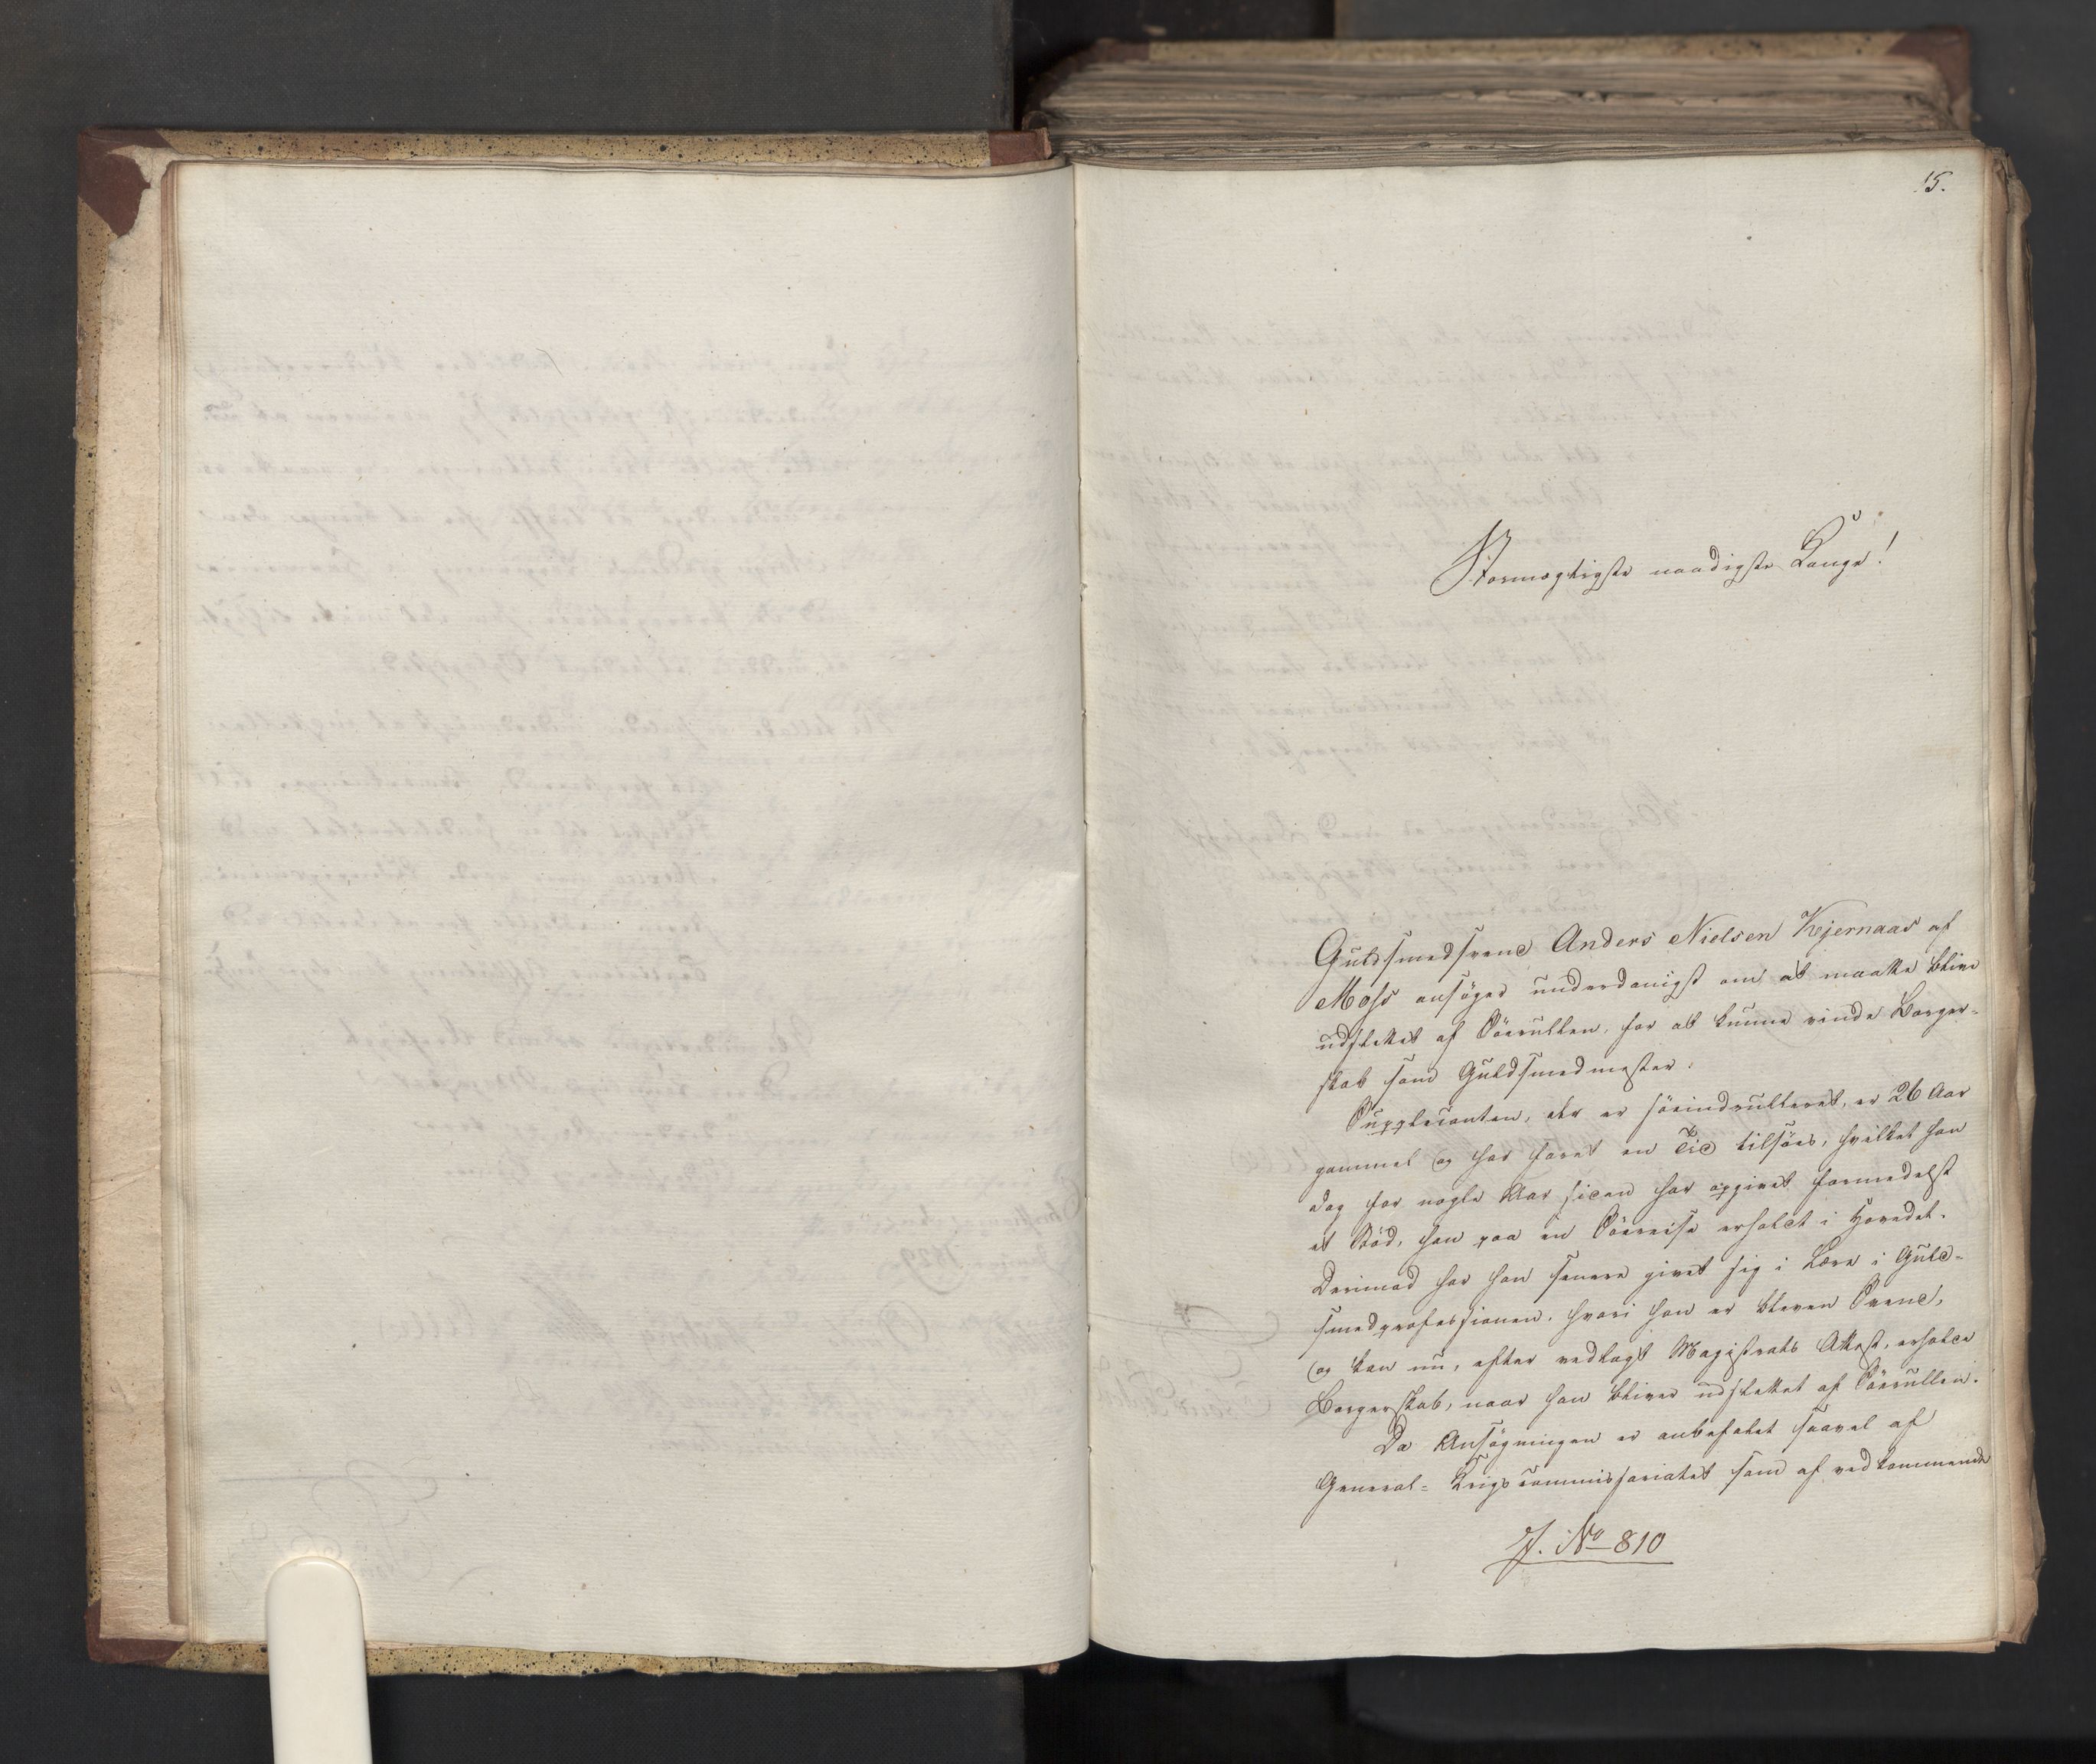 15.
Stormægtigste naadigste Konge!
Guldsmedsvend Anders Nielsen Kjernaas af
Moss ansøger underdanigst om at maatte blive
udslettet af Söerullen, for at kunne vinde Borger-
skab som Guldsmedmester.
Supplicanten, der er söeindrulleret, er 26 Aar
gammel og har faret en Tid tilsöes, hvilket han
dog for nogle Aar siden har opgivet formedelst
et Stød, han paa en Söereise erholdt i Hovedet.
Derimod har han senere givet sig i Lære i Guld-
smedprofessionen, hvori han er bleven Svend,
og kan nu, efter vedlagt Magistrats Attest, erholde
Borgerskab, naar han bliver udslettet af Söerullen.
Da Ansøgningen er anbefalet saavel af
General-Krigscommissariatet som af vedkommende
J. No 810